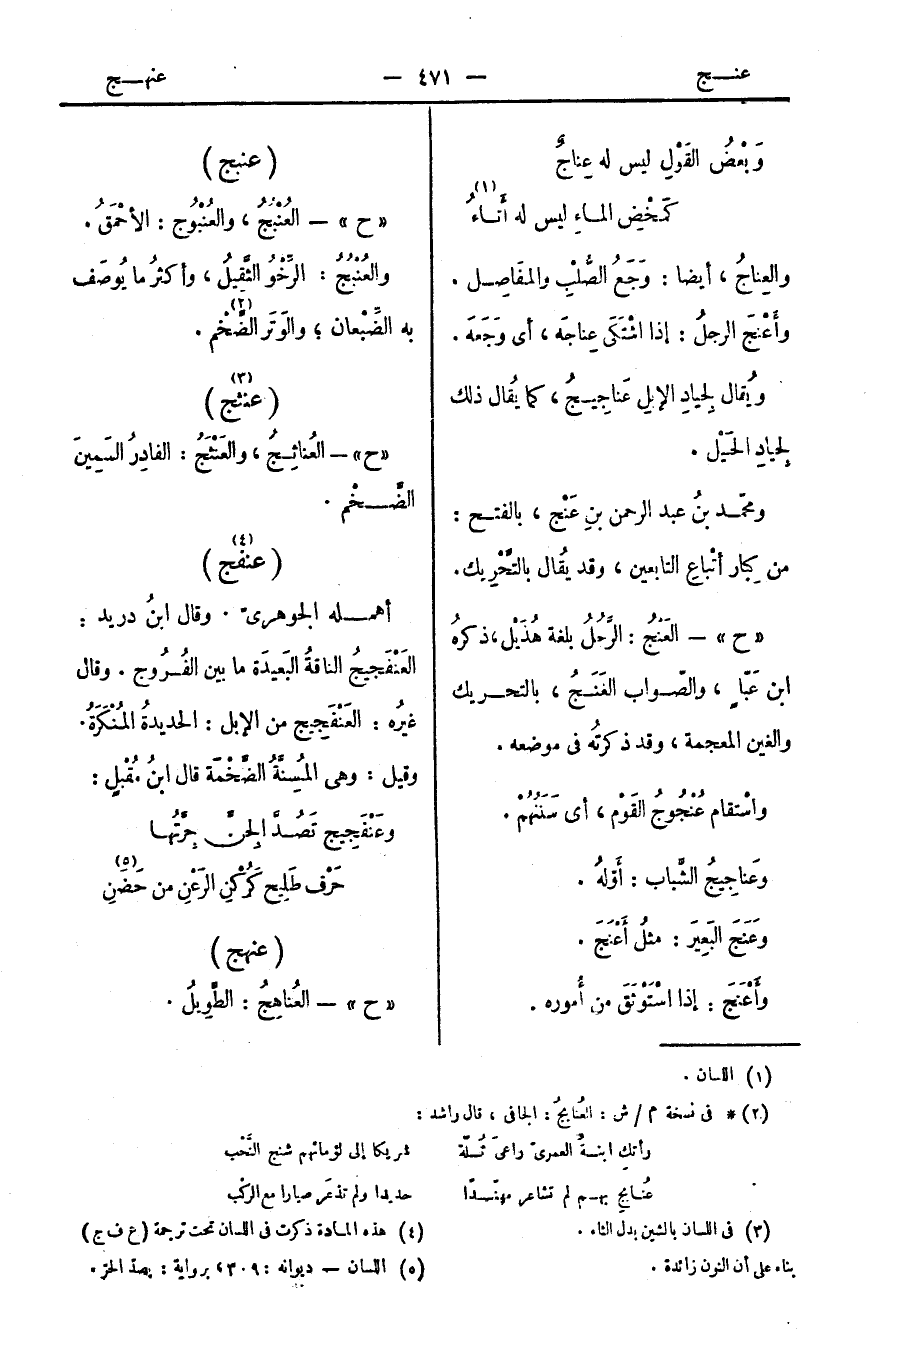 عنـــج — ٤٧١ — عنهـــج
وَبَعْضُ القَوْلِ ليس له عِناجٌ
كَمَخْضِ الماءِ ليس له أَناءُ (١)
والعِناجُ ، أيضا : وَجَعُ الصُّلْبِ والمفَاصِـل .
وأَعْنَجَ الرجلُ : إذا اشْتَكَى عِناجَه ، أى وَجَعَه .
ويُقال لِجِيادِ الإبلِ عَناجِيــجُ ، كما يُقال ذلك
لِجيادِ الخَيْل .
ومحمّـد بنُ عبد الرحمن بنِ عَنْج ، بالفتـح :
من كِبار أتْباعِ التابعين ، وقد يُقال بالتَّحْرِيك.
«ح» — العَنْجُ : الرَّجُلُ بلغة هُذَيْل، ذكرهُ
ابن عَبّادٍ ، والصّواب الغَنَـجُ ، بالتحـريك
والغين المعجمة ، وقد ذكرتُه فى موضعه .
واسْتقام عُنْجُوجُ القَوْم ، أى سَنَنُهُمْ .
وعَناجِيجُ الشَّباب : أَوّلهُ .
وعَنَجَ البَعِيرَ : مثلُ أَعْنَجَ .
وأَعْنَجَ : إذا اسْتَوْثَقَ من أُموره .
(عنبج)
«ح» — العُنْبُجُ ، والعُنْبُوج : الأَحْمَقُ .
والعُنْبُجُ : الرِّخْوُ الثَّقِيلُ ، وأكثرُ ما يُوصَف
به الضِّبْعان ؛ والوَتَر الضَّخْم (٢) .
(عنثج) (٣)
«ح» — العُناثِـجُ ، والعَنْثَجُ : الفادِرُ السَّمِينَ
الضَّـــخْم .
(عنفج) (٤)
أهمـــله الجوهرىّ . وقال ابنُ دريد :
العَنْفَجِيجُ الناقةُ البَعِيدَة ما بين الفُـرُوج . وقال
غيرُه : العَنْفَجِيج من الإبل : الحديدةُ المُنْكَرَةُ.
وقيل : وهى المُسِنَّةُ الضَّخْمَة قال ابنُ مُقْبِلٍ :
وعَنْفَجِيجٍ تَصُدَّ الجِنَّ جِرَّتُهـا
حَرْف طَلِيح كَرُكْنِ الرَعْنِ من حَضَنِ (٥)
(عنهج)
«ح» — العُناهِجُ : الطَّوِيلُ .
(١) اللسان .
(٢) * فى نسخة م / ش : العُنابِجُ : الجافى ، قال راشد :
رأتك ابنـةُ العمرىّ راعىَ ثُـلّة شريكا إلى لؤماتهم شنج النَّحْب
عُنابِج بهـم لم تشاعر مهنّـدًا حديدا ولم تذعَر صبارا مع الرّكْب
(٣) فى اللسان بالشين بدل الثاء .
(٤) هذه المادة ذكرت فى اللسان تحت ترجمة (ع ف ج)
بناء على أن النون زائدة .
(٥) اللسان — ديوانه : ٣٠٩ ، برواية : يصدّ الحرّ .